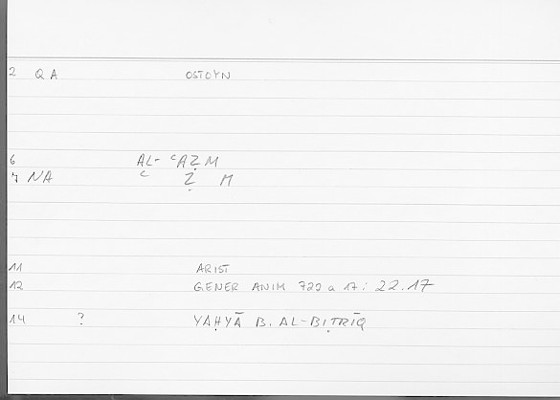 2 QA OSTOYN
6 AL-ʿAẒM
7 NA ʿ Ẓ M
11 ARIST
12 GENER ANIM 722 a 17 : 22.17
14 ? YAḤYĀ B. AL-BIṬRĪQ